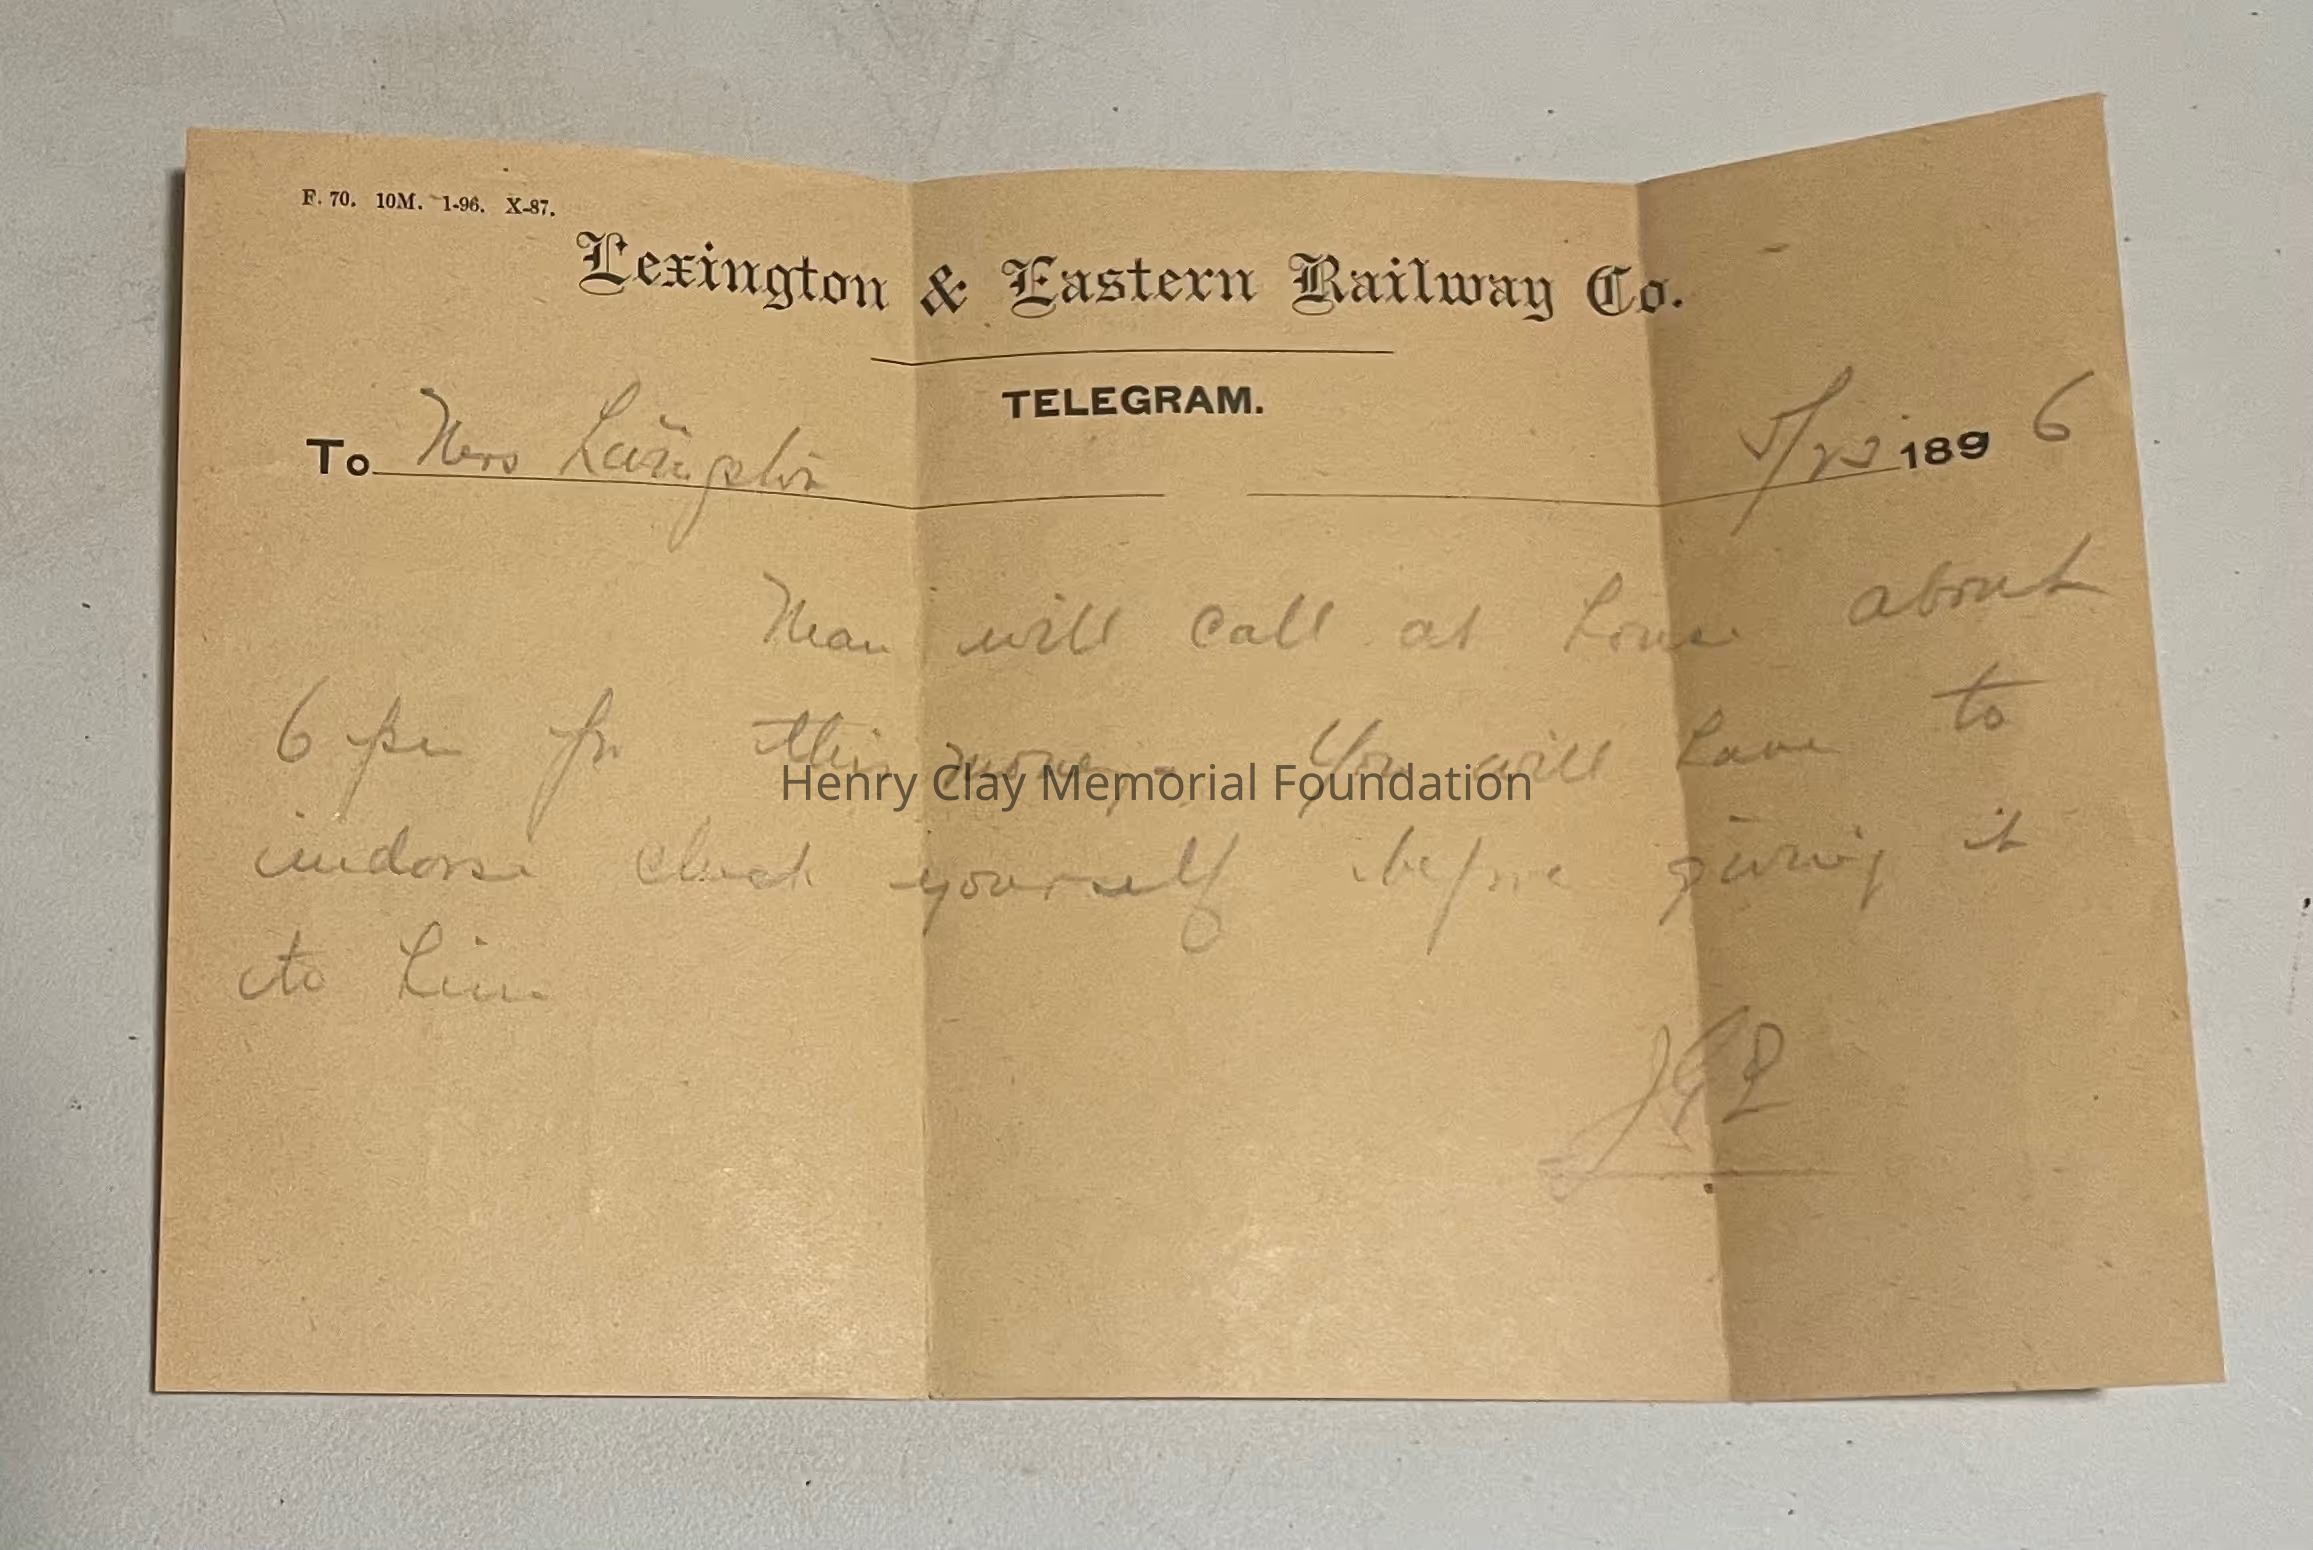 F. 70. 10M. 1-96. X-87.
Lexington & Eastern Railway Co.
TELEGRAM.
To Mrs 5/23 1896
Man will call at house about
6 pm for this money - You will have to
Henry Clay Memorial Foundation
indorse check yourself before giving it
to him